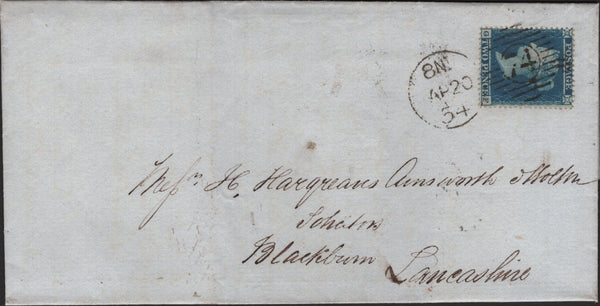 POSTAGE
TWO PENCE
8N1
AP20
54
Messrs. H. Hargreaves Ainsworth
Solicitors
Blackburn
Lancashire